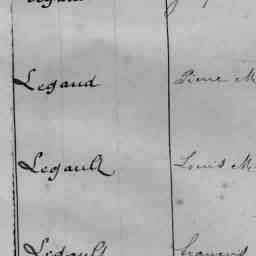 Legaud Pierre M
Legault Louis M
Legault